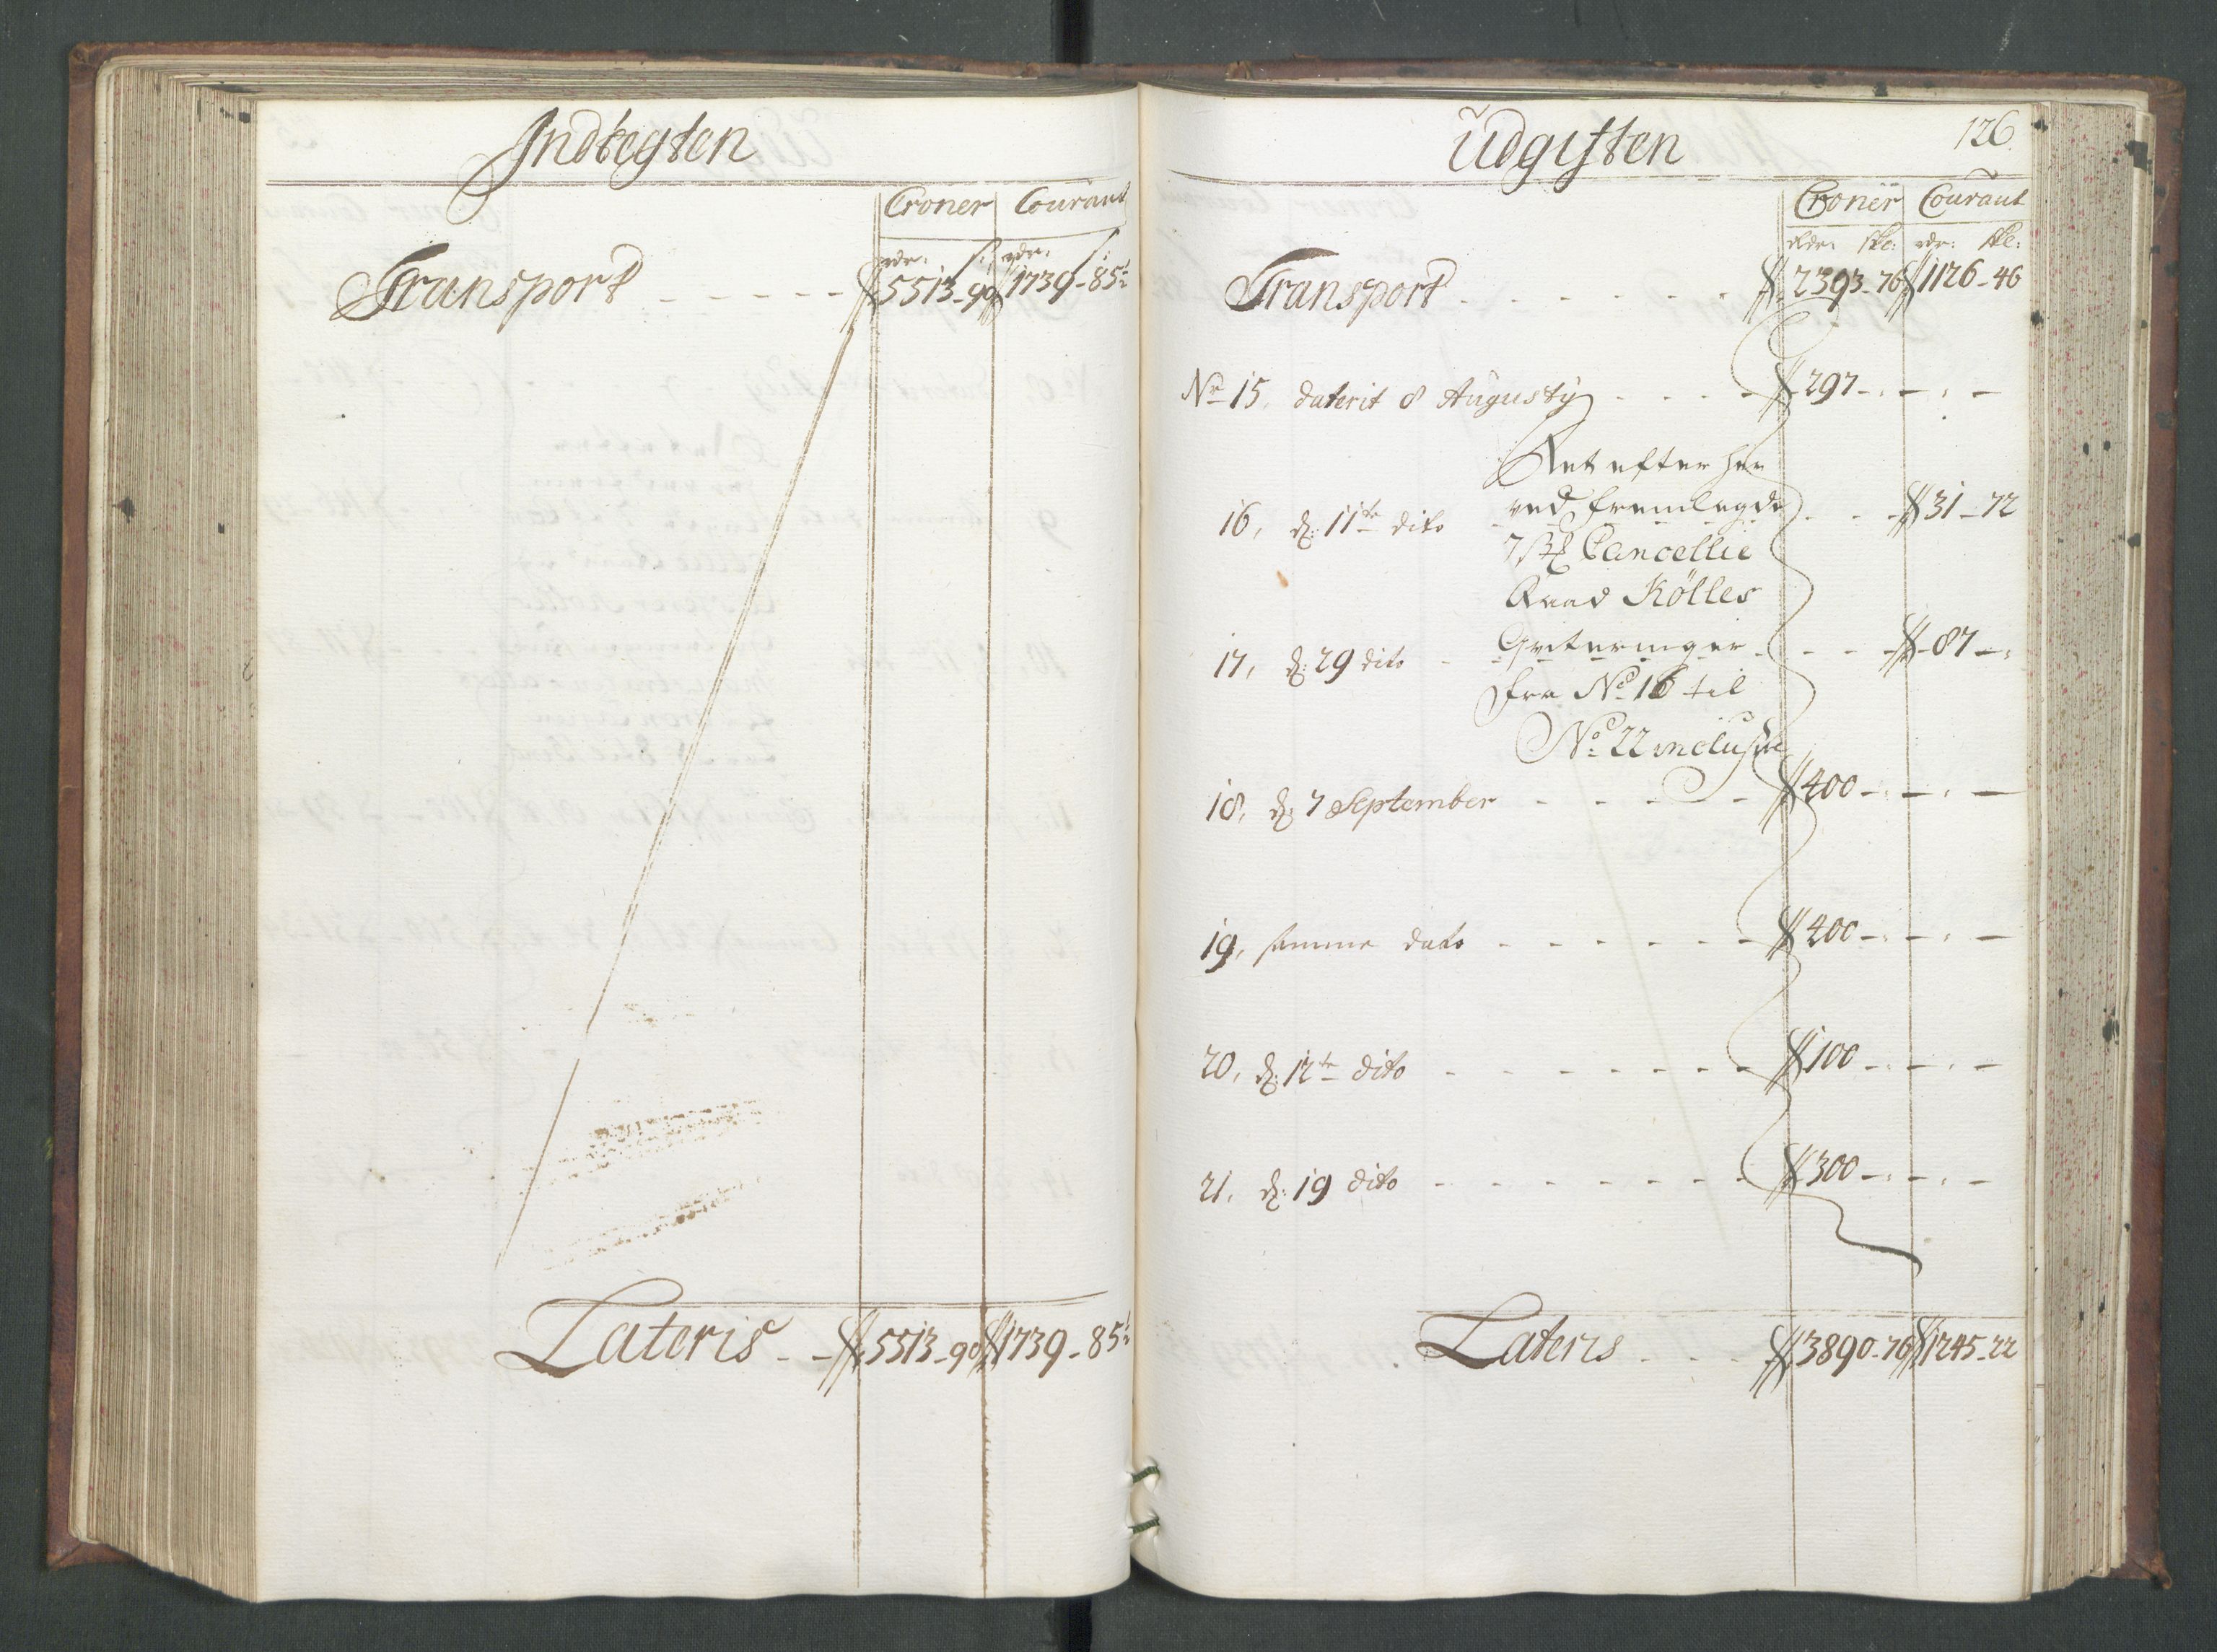 Indtegten
Croner Courant
rdr: s: rdr: s:
Transport - - - - - 5513-90 1739-85½
Lateris - - 5513-90 1739-85½
Udgiften 126
Croner Courant
rdr: ske: rdr: ske:
Transport - - - - - - 2393-76 1126-46
No 15, daterit 8 Augusty - - - - 297 - : - : -
Alt efter her
16, d: 11te dito ved fremlegde - - - 31-72
7 st: Cancellie
Raad Kölles
17, d: 29 dito - Qviteringer - - - - 87 - :
fra No 16 til
No 22 inclusive
18, d: 7 September - - - - - 400 - : - : -
19, samme dato - - - - - - 400 - : - : -
20, d: 12te dito - - - - - - - 100 - : - : -
21, d: 19 dito - - - - - - - 300 - : - : -
Lateris - - - 3890-76 1245-22